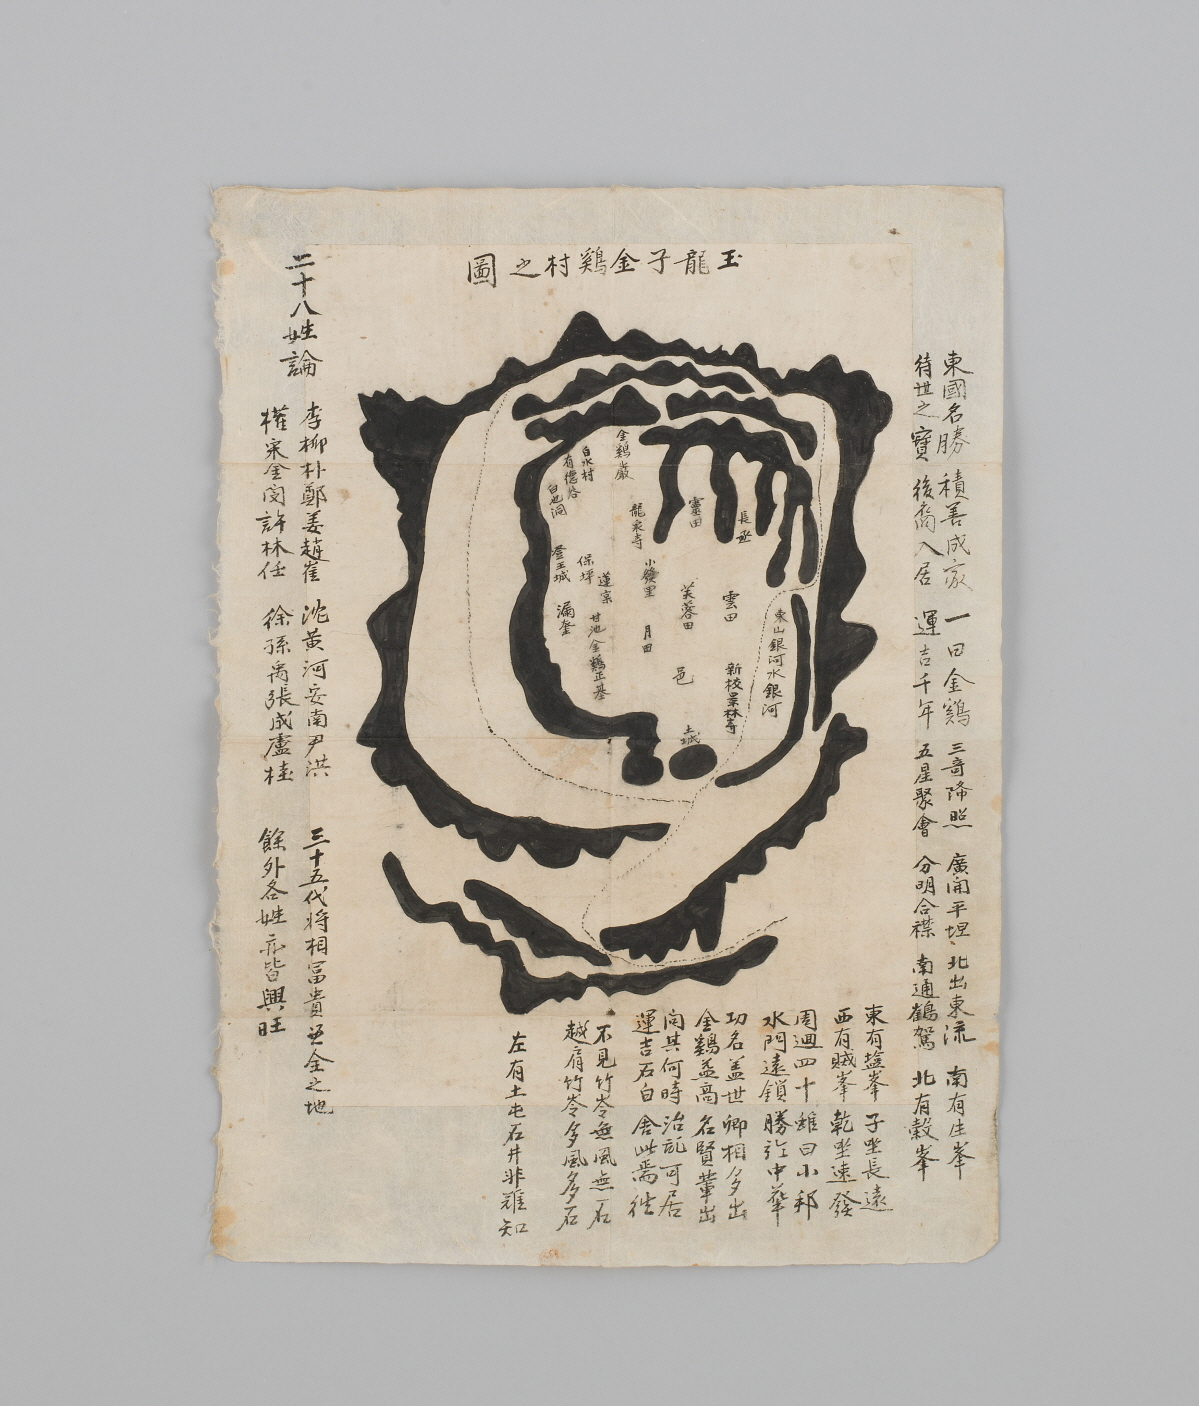 玉龍子金鷄村之圖
東國名勝 積善成家 一曰金鷄 三奇降照 廣開平坦 北出東流 南有生峯
待世之寶 後裔入居 運吉千年 五星聚會 分明合襟 南通鶴駕 北有穀峯
東有塩峯 子坐長遠
西有賊峯 乾坐速發
周迴四十 雖曰小邦
水門遠鎖 勝於中華
功名盖世 卿相多出
金鷄盖高 名賢輩出
問其何時 治乱可居
運吉石白 舍此焉往
不見竹岑無風無石
越肩竹岑多風多石
左有土屯石井非難知
二十八姓論
李柳朴鄭姜趙崔 沈黃河安南尹洪 三十五代將相冨貴 金之地
權宋金閔許林任 徐孫禹張成盧桂 餘外各姓亦皆興旺
金鷄巖
白水村
有儒谷
白也洞
龍泉寺
靈田
長丞
保坪
蓮宗
小發里
芙蓉田
雲田
漏奎
月田
甘池金鷄正基
東山銀河水銀河
邑
新校景林寺
土城